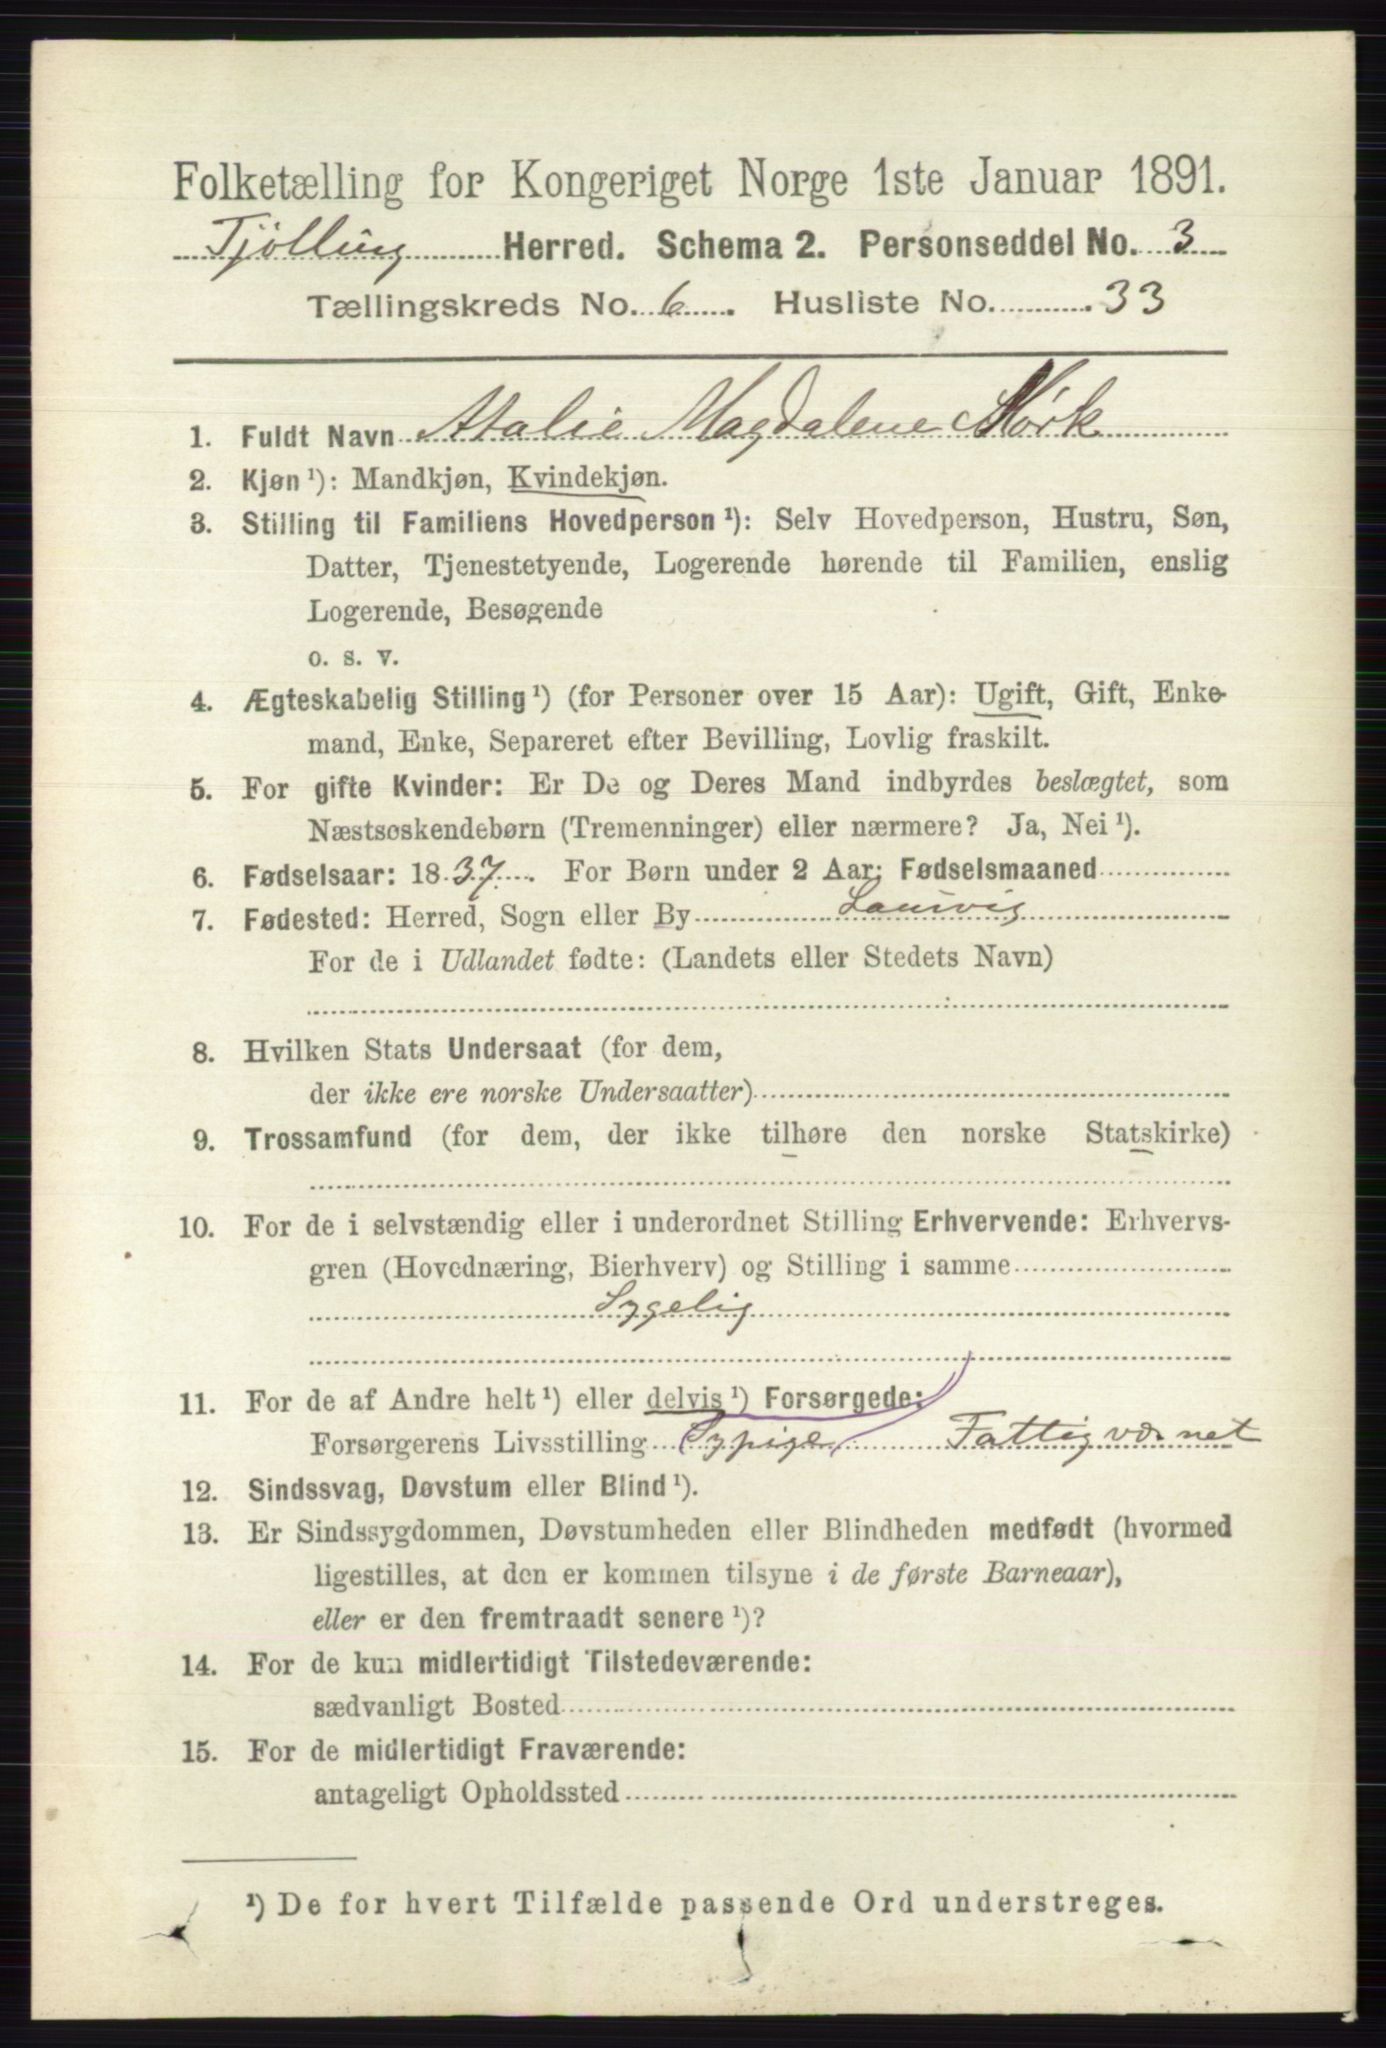 Folketælling for Kongeriget Norge 1ste Januar 1891.
Tjølling Herred. Schema 2. Personseddel No. 3
Tællingskreds No. 6. Husliste No. 33
1. Fuldt Navn Atalie Magdalene Mørk
2. Kjøn ¹): Mandkjøn, Kvindekjøn.
3. Stilling til Familiens Hovedperson ¹): Selv Hovedperson, Hustru, Søn,
Datter, Tjenestetyende, Logerende hørende til Familien, enslig
Logerende, Besøgende
o. s. v.
4. Ægteskabelig Stilling ¹) (for Personer over 15 Aar): Ugift, Gift, Enke-
mand, Enke, Separeret efter Bevilling, Lovlig fraskilt.
5. For gifte Kvinder: Er De og Deres Mand indbyrdes beslægtet, som
Næstsøskendebørn (Tremenninger) eller nærmere? Ja, Nei ¹).
6. Fødselsaar: 1837. For Børn under 2 Aar: Fødselsmaaned
7. Fødested: Herred, Sogn eller By Laurvig
For de i Udlandet fødte: (Landets eller Stedets Navn)
8. Hvilken Stats Undersaat (for dem,
der ikke ere norske Undersaatter)
9. Trossamfund (for dem, der ikke tilhøre den norske Statskirke)
10. For de i selvstændig eller i underordnet Stilling Erhvervende: Erhvervs-
gren (Hovednæring, Bierhverv) og Stilling i samme
Sygelig
11. For de af Andre helt ¹) eller delvis ¹) Forsørgede:
Forsørgerens Livsstilling (Sypige) Fattigvæsnet
12. Sindssvag, Døvstum eller Blind ¹).
13. Er Sindssygdommen, Døvstumheden eller Blindheden medfødt (hvormed
ligestilles, at den er kommen tilsyne i de første Barneaar),
eller er den fremtraadt senere ¹)?
14. For de kun midlertidigt Tilstedeværende:
sædvanligt Bosted
15. For de midlertidigt Fraværende:
antageligt Opholdssted
¹) De for hvert Tilfælde passende Ord understreges.